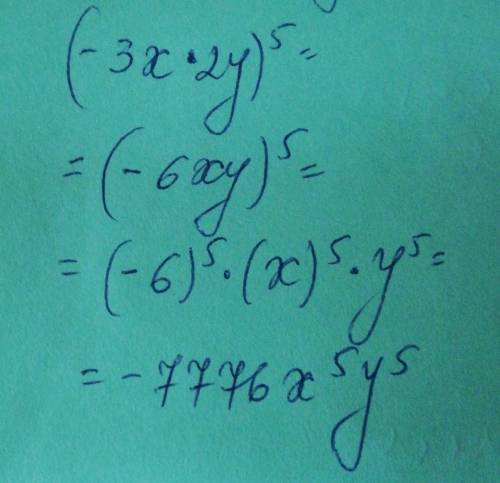 (-3x·2y)⁵=
=(-6xy)⁵=
=(-6)⁵·(x)⁵·y⁵=
=-7776x⁵y⁵